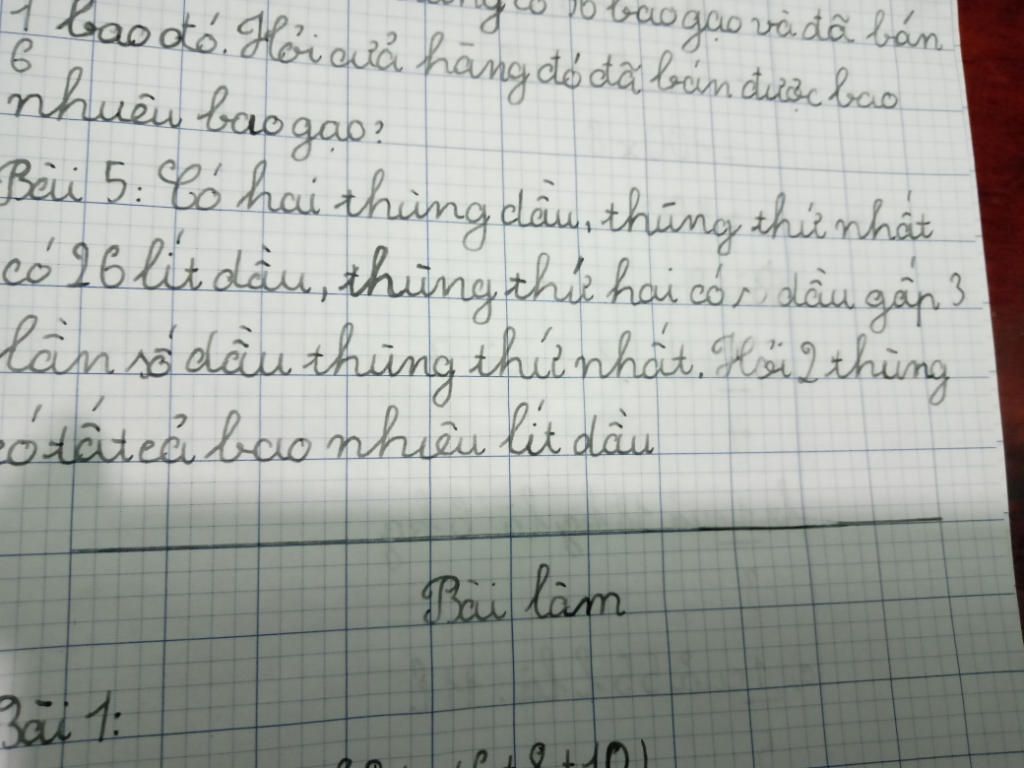 có bao gạo và đã bán
1/6 bao đó. Hỏi cuả hàng đó đã bán được bao
nhuêu bao gạo?
Bài 5: Có hai thùng dầu, thùng thứ nhất
có 26 lít dầu, thùng thứ hai có dầu gấp 3
lần số dầu thùng thứ nhất. Hỏi 2 thùng
có tất cả bao nhiêu lít dầu
Bài làm
Bài 1:
+ 10)